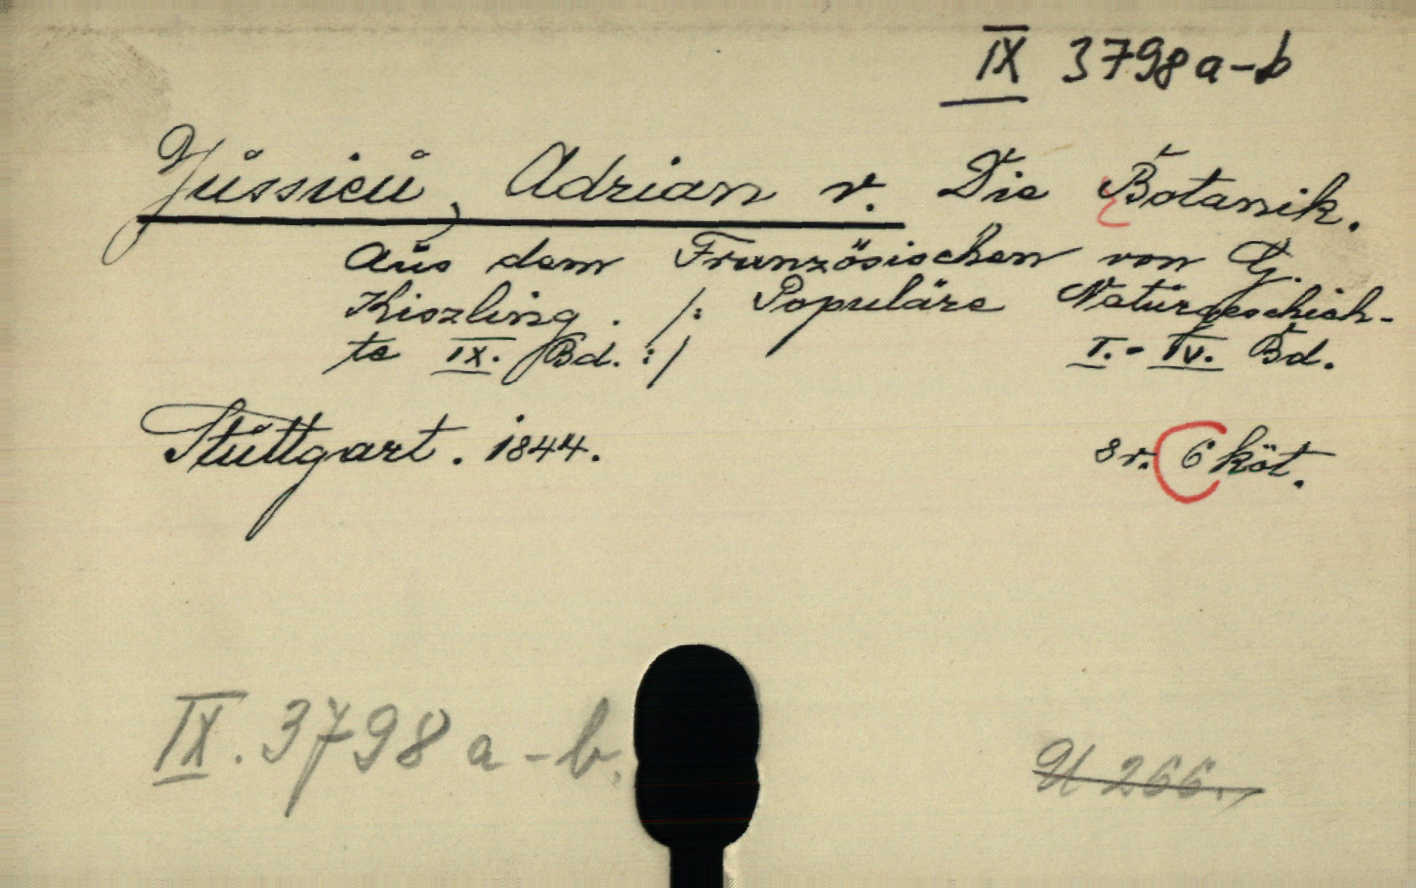 IX 3798 a-b
Jussieu, Adrian v. Die Botanik.
Aus dem Französischen von G.
Kiszling. /: Populäre Naturgeschich-
te IX. Bd. :/ I.-IV. Bd.
Stuttgart. 1844. 8r. 6 köt.
IX. 3798 a-b.
U 266.